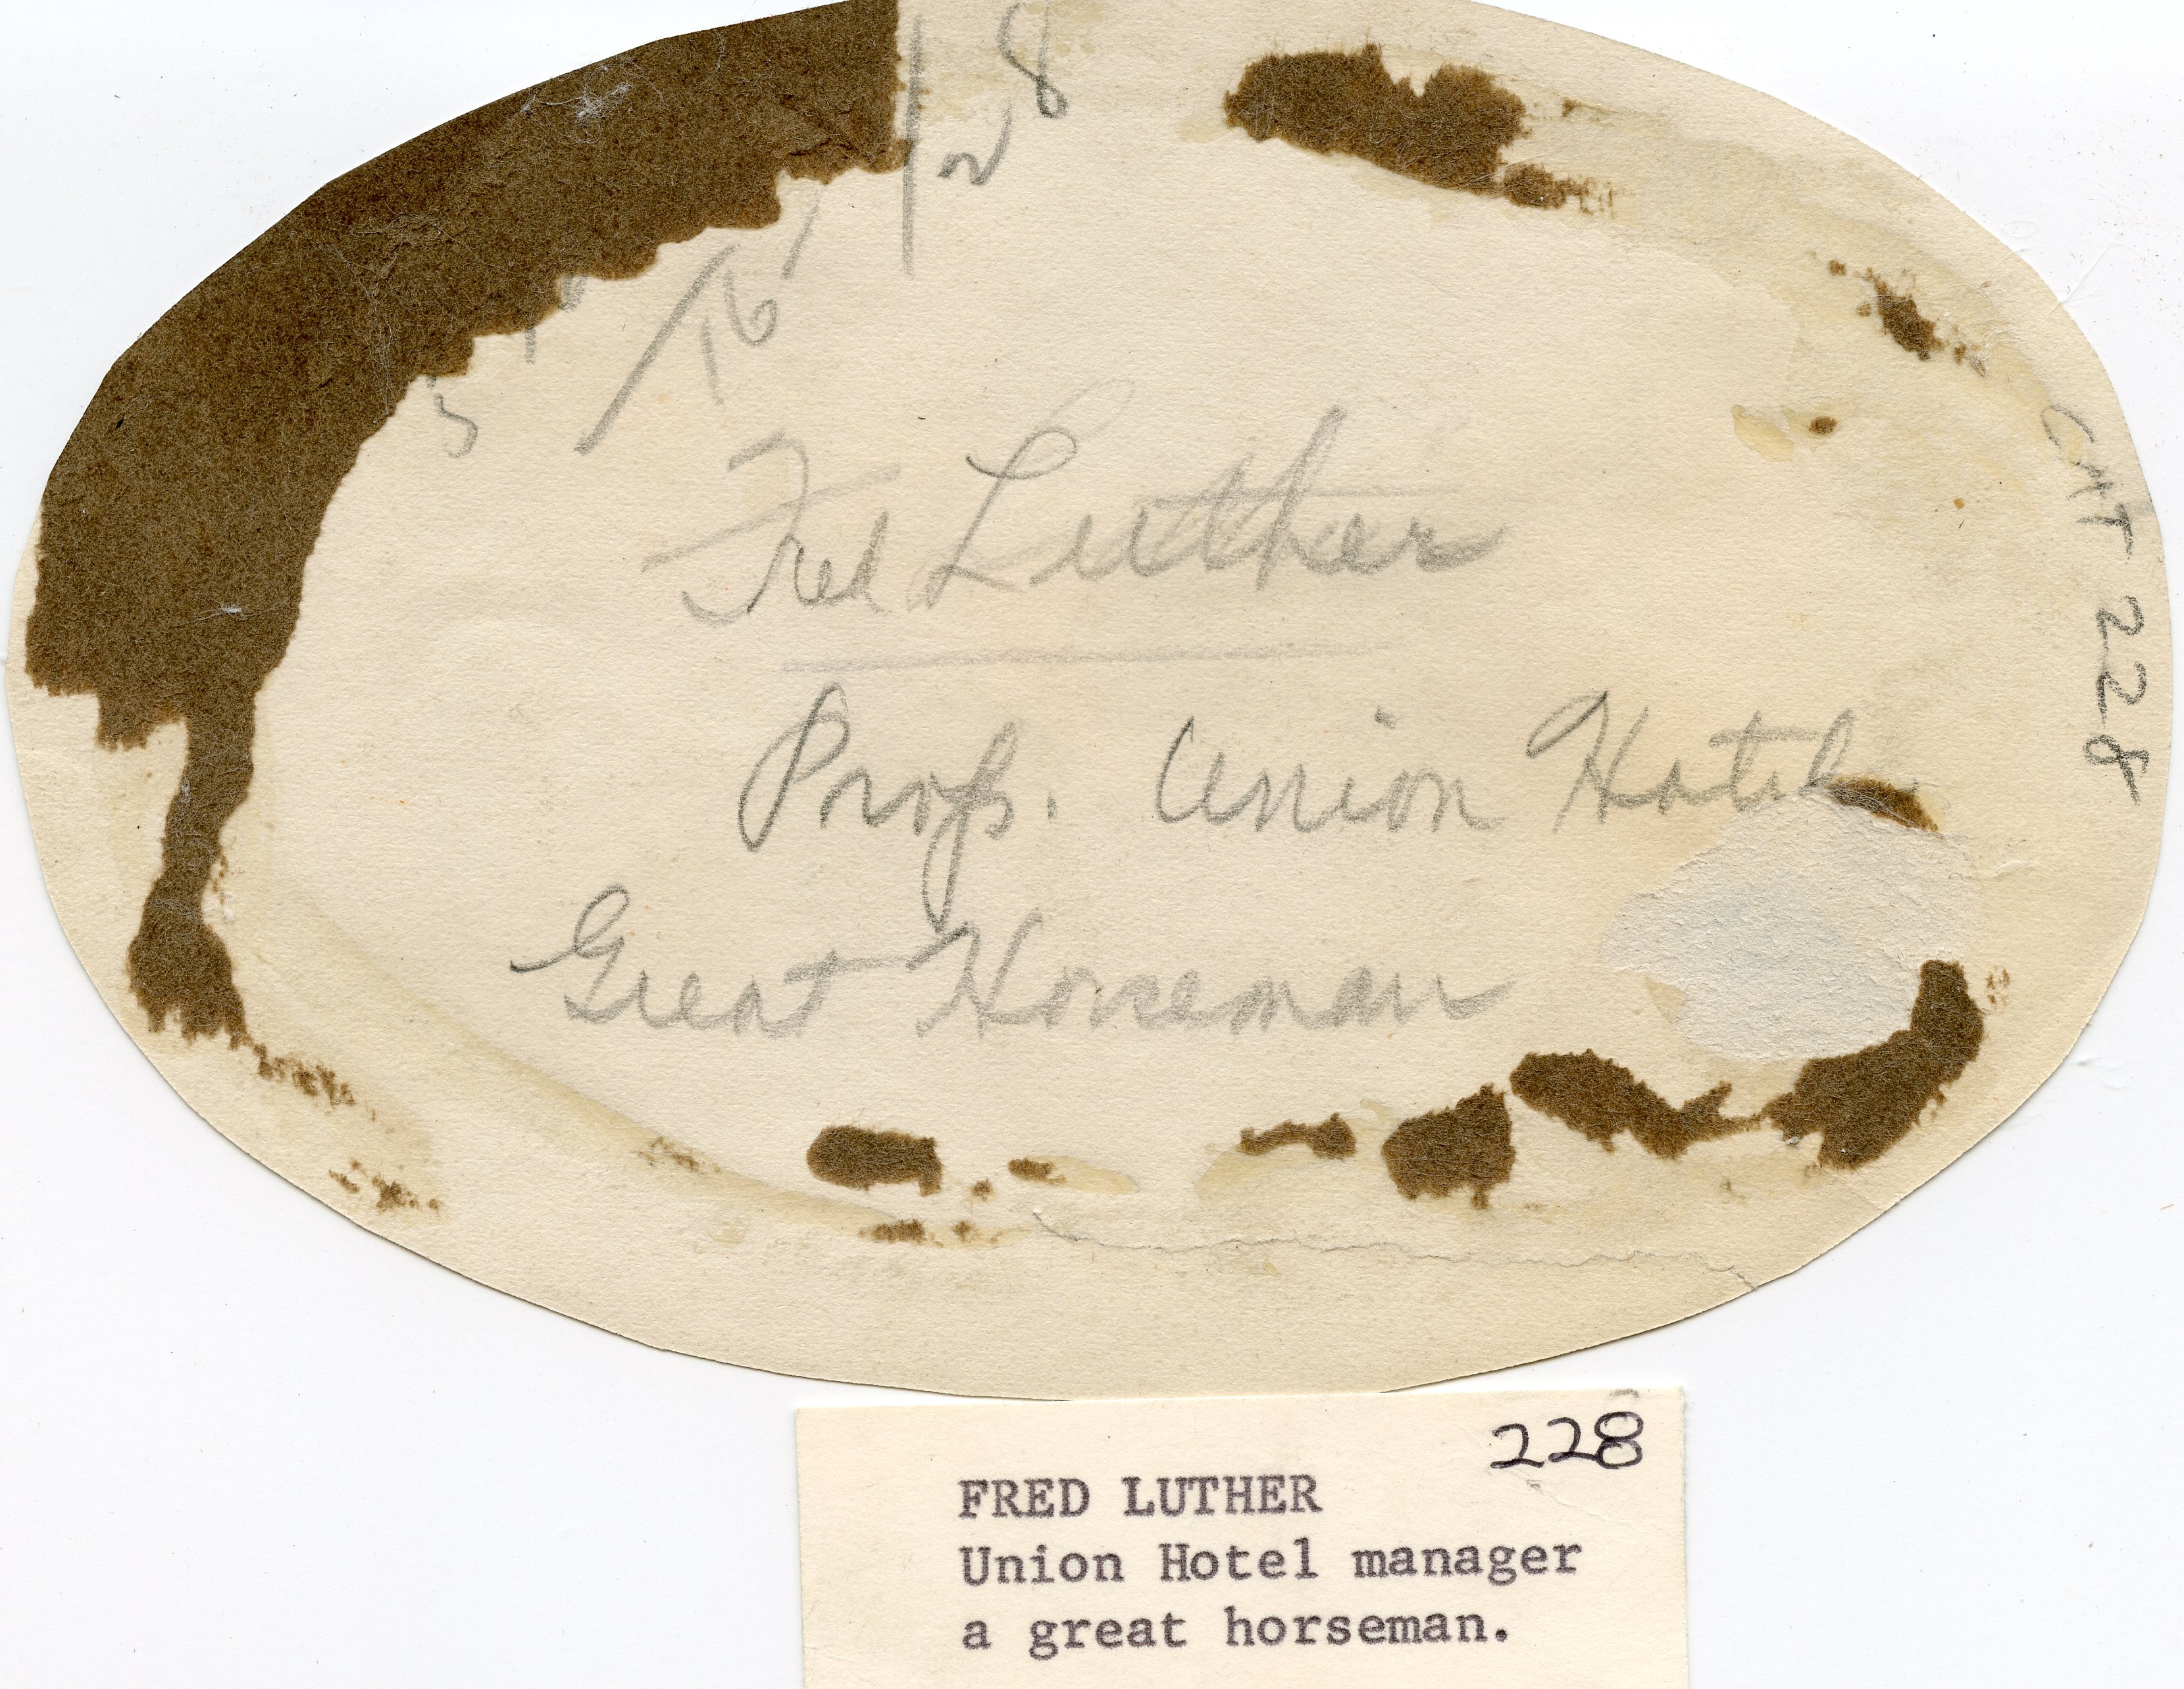 28
16
5
Fred Luther
Prop. Union Hotel
Great Horseman
CAT 228
228
FRED LUTHER
Union Hotel manager
a great horseman.